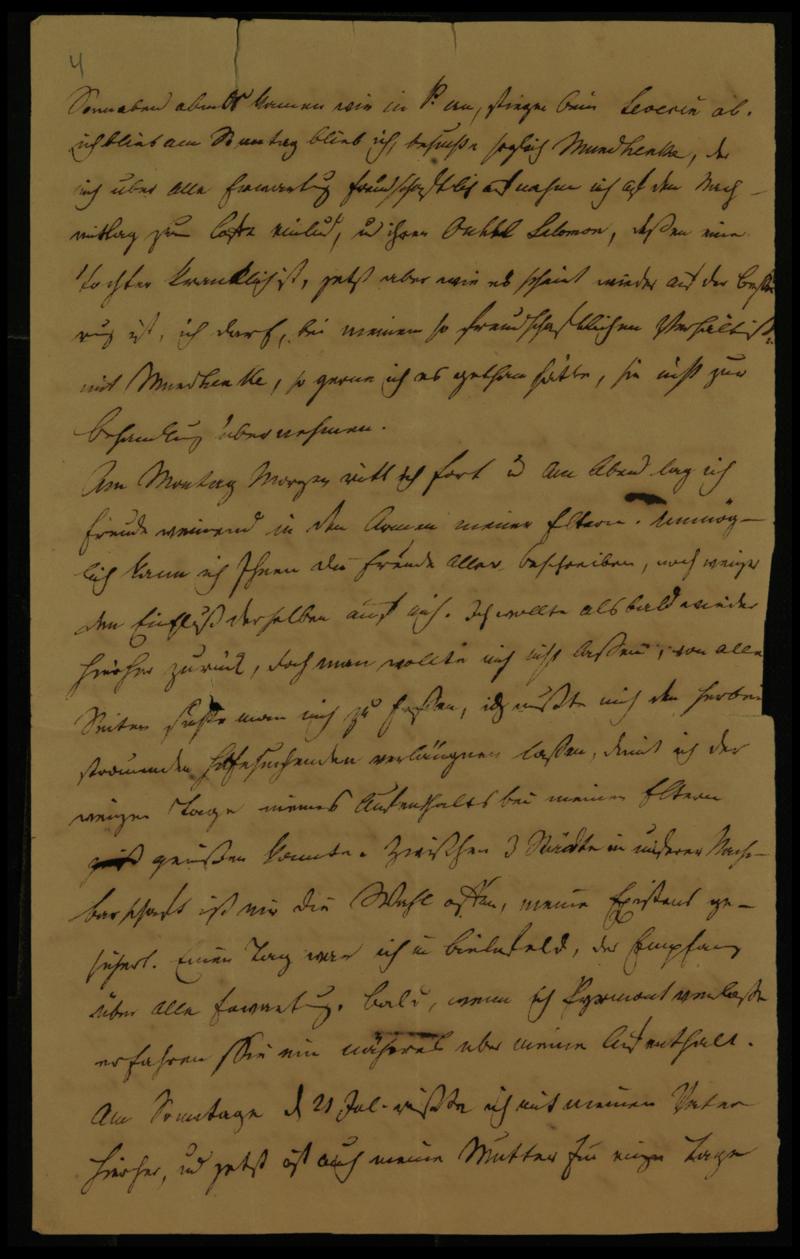 4
Sonnabend abends kamen wir in P. an, stiegen beim ab.
ich blieb am Sonntag blieb ich, besuchte sogleich Mundhenke, der
mich über alle Erwartung freundschaftlich aufnahm ich auf den Nach-
mittag zum Caffe einlud, und ihren Onkel Salomon, dessen eine
Tochter kränklich ist, jetzt aber wie es scheint wieder auf der Besse-
rung ist, ich darf, bei meinem so freundschaftlichen Verhältniß
mit Mundhenke, so gerne ich es gethan hätte, sie nicht zur
Behandlung übernehmen.
Am Montag Morgen ritt ich fort u am Abend lag ich
Freude weinend in den Armen meiner Eltern. Unmög-
lich kann ich Ihnen die Freude aller beschreiben, noch weniger
den Einfluß derselben auf mich. Ich wollte alsbald wieder
hierher zurück, doch man wollte mich nicht lassen, von allen
Seiten suchte man mich zu fassen, ich mußte mich den herbei
stroemenden Hilfesuchenden verläugnen lassen, damit ich der
wenigen Tage meines Aufenthalts bei meinen Eltern
genießen konnte. Zwischen 3 Städte in unserer Nach-
barschaft ist mir die Wahl offen, meine Existens ge-
sichert. Einen Tag war ich in Bielefeld, der Empfang
über alle Erwartung. Bald, wenn ich Pyrmont verlasse
erfahren Sie ein näheres über meine Aufenthalt.
Am Sonntage d 21 Jul. reißte ich mit meinem Vater
hierher, und jetzt ist auch meine Mutter für einige Tage